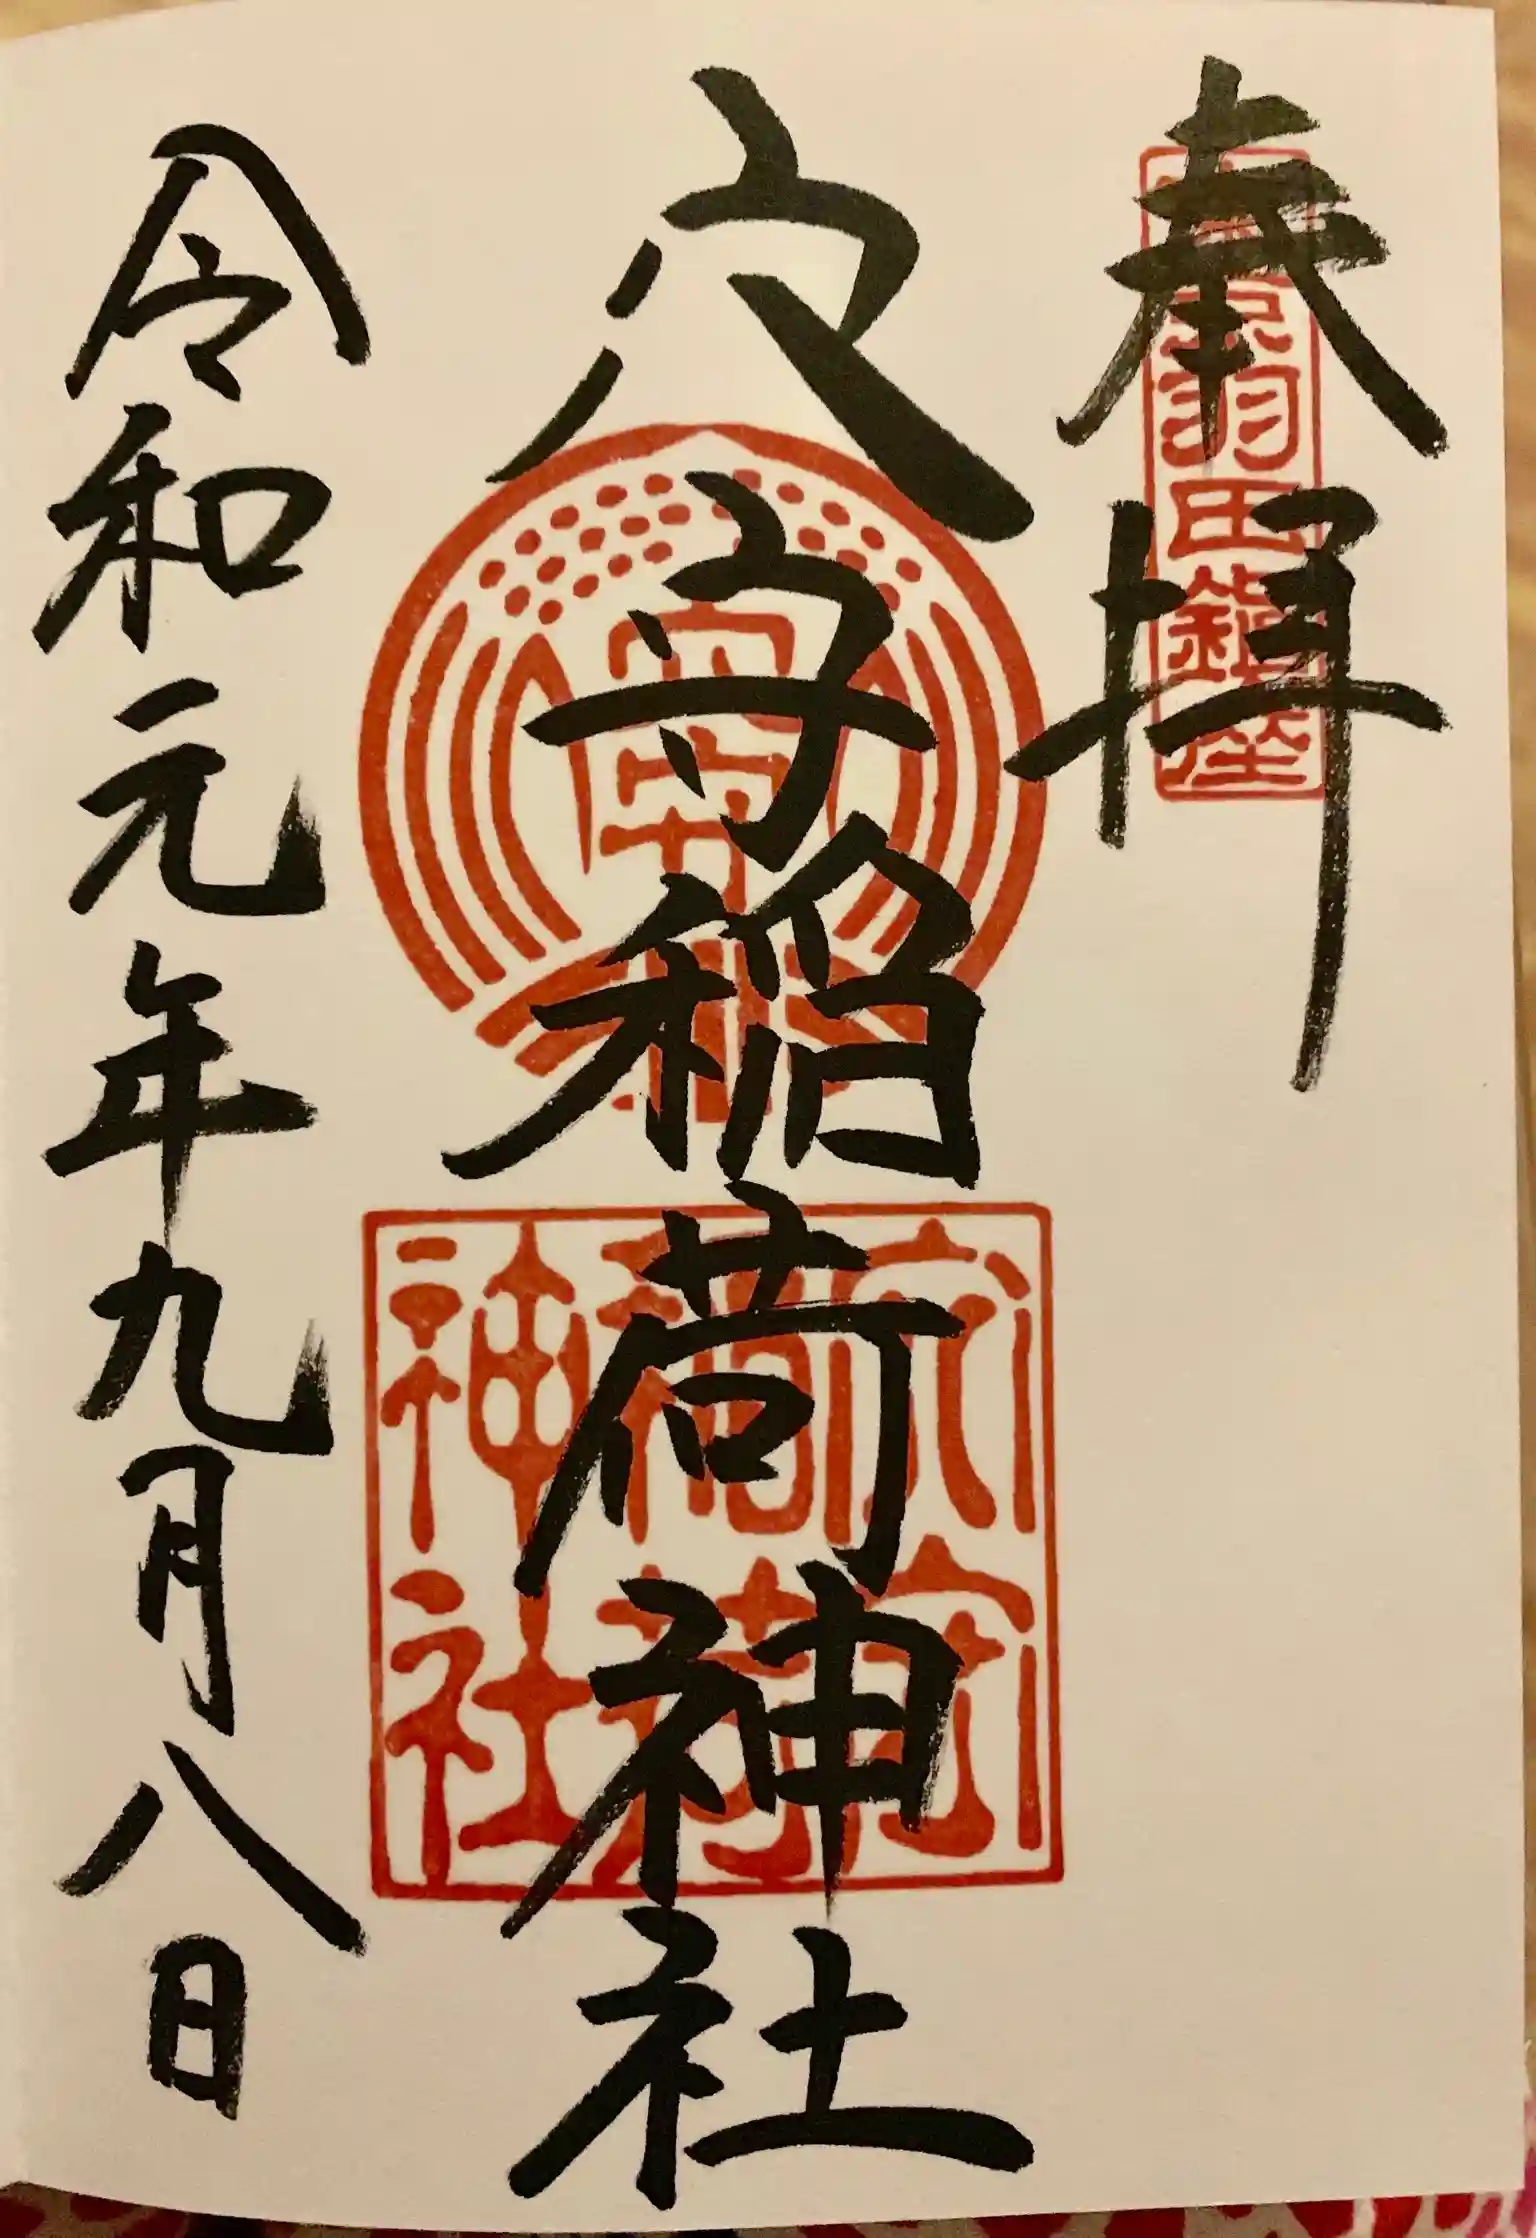 奉拝
東京羽田鎮座
穴守稲荷神社
穴守
穴守
稲荷
神社
令和元年九月八日